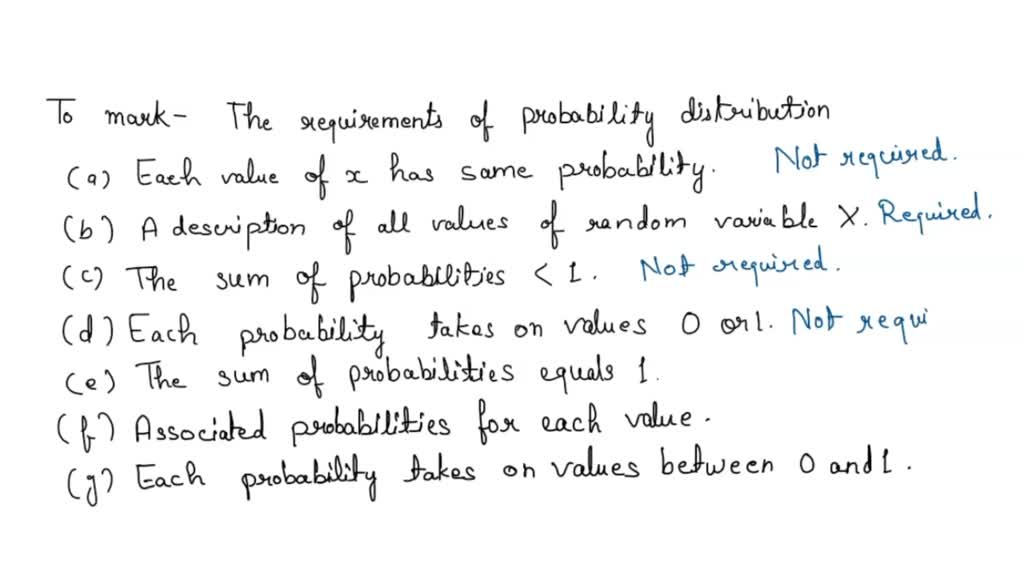 To mark- The requirements of probability distribution
(a) Each value of x has same probability. Not required.
(b) A description of all values of random variable X. Required.
(c) The sum of probabilities < 1. Not required.
(d) Each probability takes on values 0 or 1. Not requi
(e) The sum of probabilities equals 1.
(f) Associated probabilities for each value.
(g) Each probability takes on values between 0 and 1.